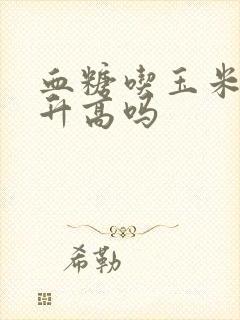 血糖吃玉米
升高吗
希勒